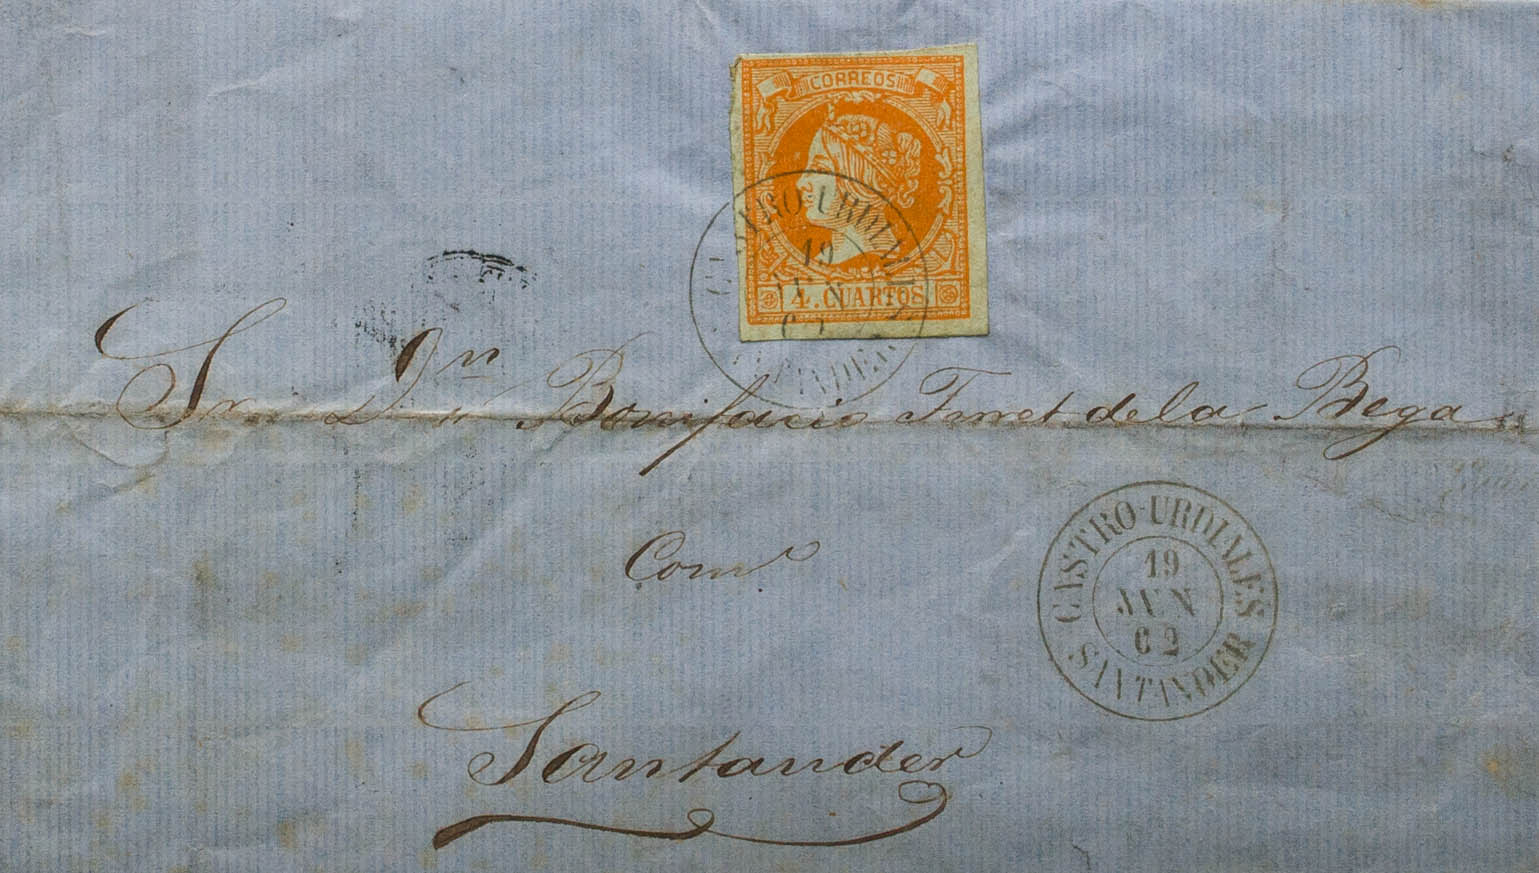 CORREOS
4. CUARTOS
CASTRO-URDIALES
19
JUN
62
SANTANDER
Sr. Dn Dn Bonifacio Ferret de la Bega
Com.o
CASTRO-URDIALES
19
JUN
62
SANTANDER
Santander